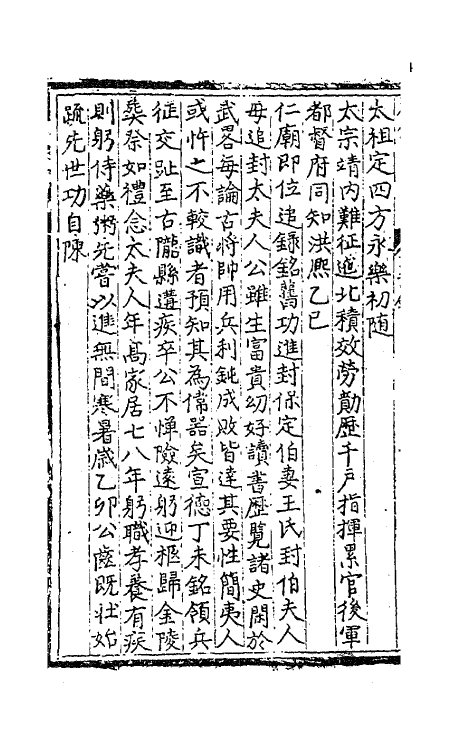 太祖定四方永樂初随
太宗靖内難征迤北積效勞勛歷千戸指揮累官後軍
都督府同知洪熈乙巳
仁廟即位追録銘舊功進封保定伯妻王氏封伯夫人
毋追封太夫人公雖生冨貴幼好讀書歷覽諸史閑於
武畧每論古將帥用兵利鈍成敗皆達其要性簡夷人
或忤之不較識者預知其為偉器矣宣徳丁未銘領兵
征交趾至古隴縣遘疾卒公不憚險遠躬迎柩歸金陵
塟祭如禮念太夫人年髙家居七八年躬職孝養有疾
則躬侍藥粥先嘗以進無間寒暑歲乙卯公齒既壮始
䟽先世功自陳